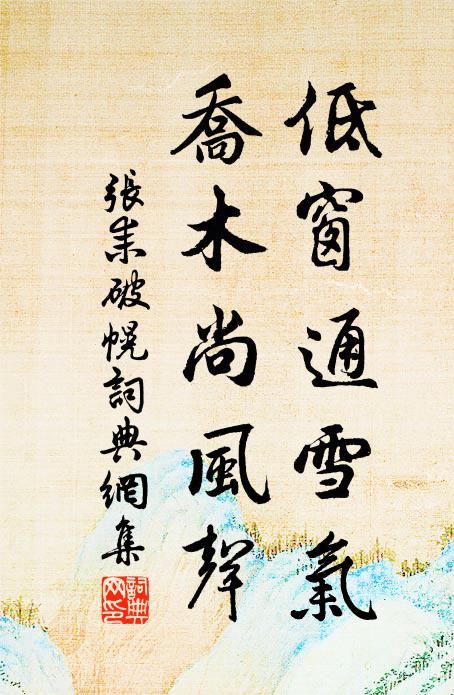 低窗通雪氣
喬木尚風聲
張耒破幌詞典網集
詞典网印